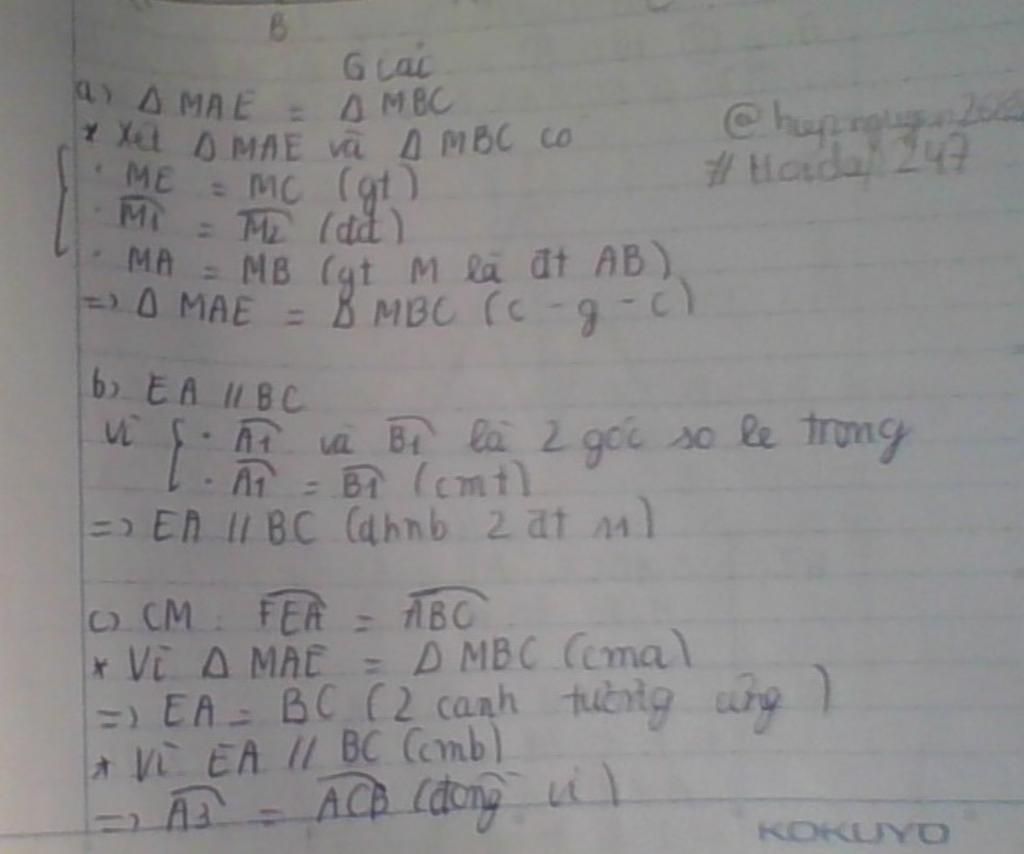 B
Giải
a) Δ MAE = Δ MBC
* Xét Δ MAE và Δ MBC có
· ME = MC (gt)
· M1 = M2 (dd)
· MA = MB (gt M là đt AB)
=> Δ MAE = Δ MBC (c - g - c)
b) EA // BC
Vì { · A1 và B1 là 2 góc so le trong
· A1 = B1 (cmt)
=> EA // BC (dhnb 2 đt //)
c) CM : FEA = ABC
* Vì Δ MAE = Δ MBC (cma)
=> EA = BC (2 cạnh tương ứng)
* Vì EA // BC (cmb)
=> A3 = ACB (đồng vị)
#Hoidap247
KOKUYO